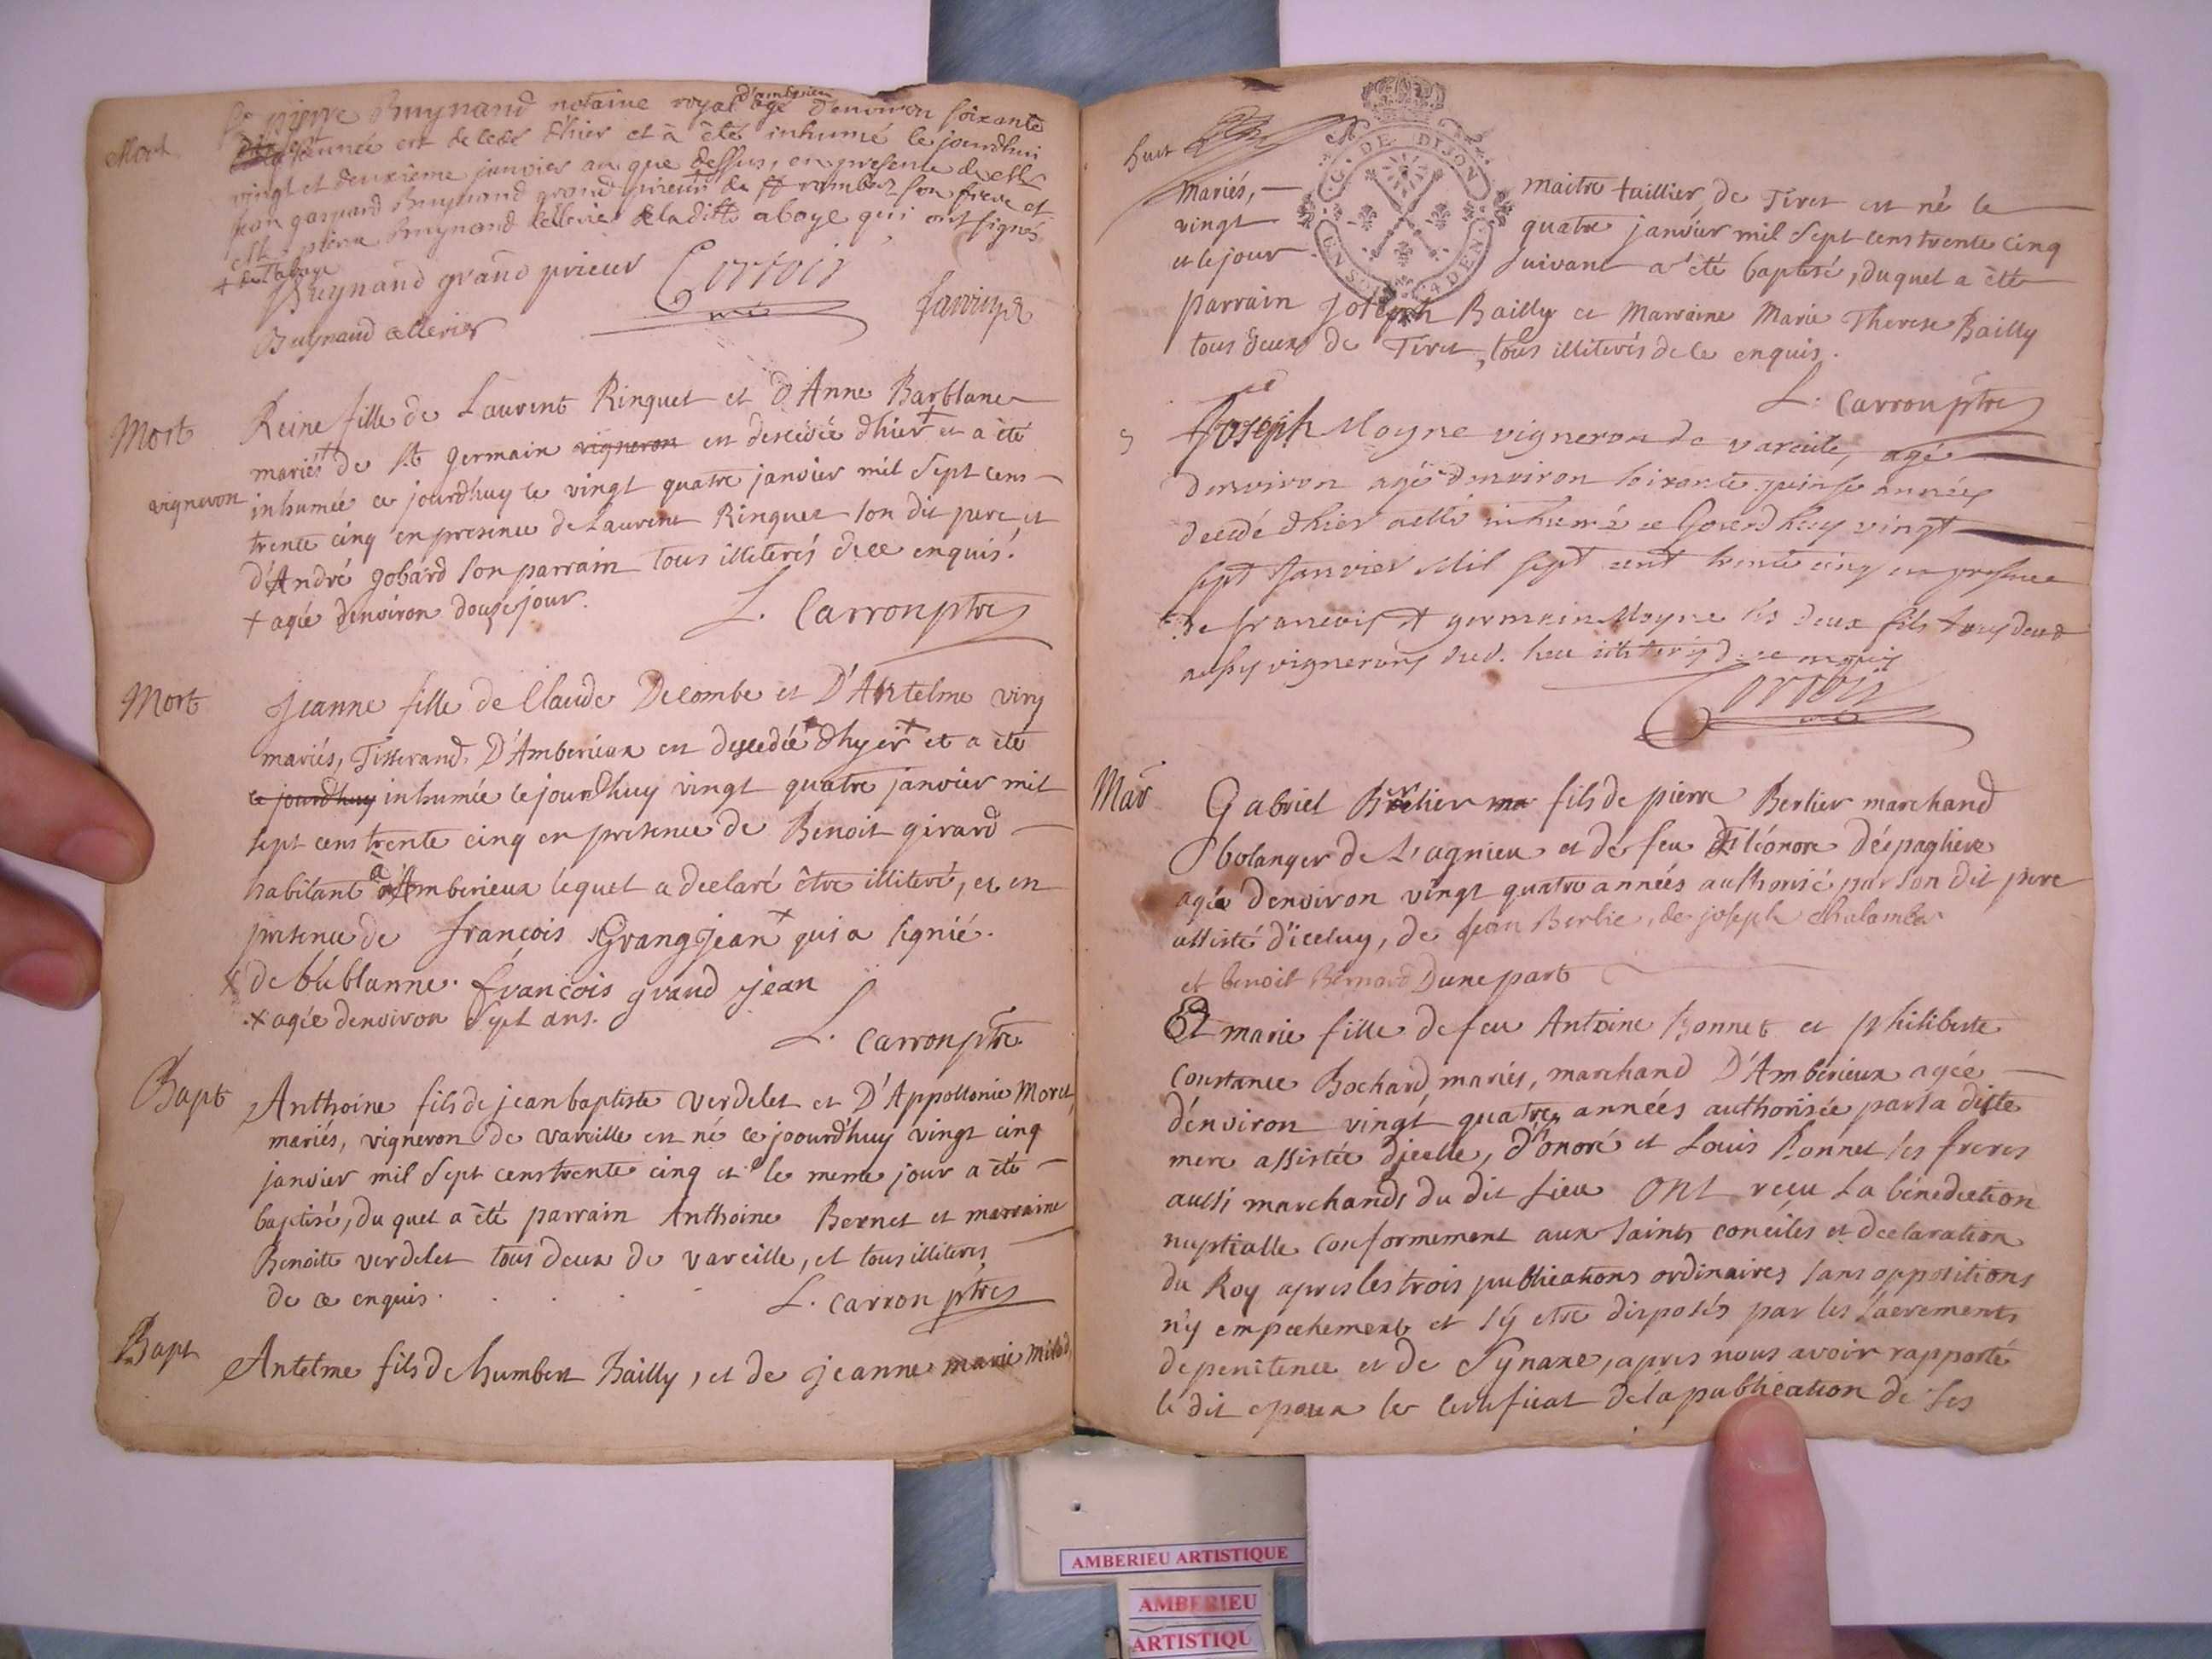 Mort
Sr pierre Buynand notaire royal d'ambrieu agé d'environ soixante
année est decedé d'hier et a été inhumé le jourdhui
vingt et deuxieme janvier an que dessus, en presence de
jean gaspard Buynand grand prieur de St rambert son frere et
pierre Buynand cellerier de la ditte abaye qui ont signés
+ de l'abaye
Buynand grand prieur Cortois
curé
Buynand cellerier
Mort
Reine fille de Laurent Rinquet et d'Anne Barblanc
mariés + de St germain vigneron est descedée dhier + et a été
vigneron
inhumée ce jourdhuy le vingt quatre janvier mil sept cens
trente cinq en presence de Laurent Rinquet son dit pere et
d'André gobard son parrain tous illiterés de ce enquis.
+ agée denviron douze jour.
L. Carron ptre
Mort
Jeanne fille de Claude Decombe et D'Antelme viry
mariés, Tisserand, D'Amberieux est descedée dhyer + et a été
ce jourdhuy inhumée le jourdhuy vingt quatre janvier mil
sept cens trente cinq en presence de Benoit girard
habitant a Amberieux lequel a declaré être illiteré, et en
presence de françois Grangjean + qui a signié.
x de bublanne. françois grand jean
x agée denviron sept ans.
L. Carron ptre
Bapt
Anthoine fils de jean baptiste Verdelet et D'Appollonie Moret
mariés, vigneron de Vareille est né ce joourd'huy vingt cinq
janvier mil sept cens trente cinq et le meme jour a été
baptisé, du quel a été parrain Anthoine Bernet et marraine
Benoite verdelet tous deux de vareille, et tous illiteres
de ce enquis.
L. carron ptre
Bapt
Antelme fils de humbert Bailly, et de jeanne marie
huit
G. DE DIJON
mariés, maitre taillier de Tiret est né le
vingt quatre janvier mil sept cens trente cinq
et le jour suivant a été baptisé, duquel a été
parrain joseph Bailly et Marraine Marie Therese Bailly
tous deux de Tiret, tous illiterés de ce enquis.
L. Carron ptre
Joseph Moyne vigneron de vareille, agé
denviron agé denviron soixante quinse années
decedé dhier a esté inhumé ce Jourdhuy vingt
sept Janvier Mil sept cent trente cinq en presence
de francois et germain Moyne ses deux fils tous deux
aussy vignerons dud. lieu illiterés de ce enquis
Cortois
curé
Mar
Gabriel Berlier fils de pierre Berlier marchand
bolanger de Lagnieu et de feu Eléonore déspaghere
agée denviron vingt quatre années authorisé par son dit pere
assisté d'iceluy, de jean Berlie, de joseph chalambe
et benoit Bernard Dune part
Et marie fille de feu Antoine Bonnet et philiberte
Constance Bochard mariés, marchand D'Amberieux agée
d'énviron vingt quatre années authorisée par la ditte
mere assistée d'icelle, d'onoré et Louis Bonnet ses freres
aussi marchands du dit Lieu ont recu La bénediction
nuptialle Conformement aux saints conciles et declaration
du Roy apres les trois publications ordinaires sans oppositions
n'y empechement et s'y etre disposés par les sacrements
de penitence et de Synaxe, apres nous avoir rapporté
le dit epoux le certificat de la publication de ses
AMBERIEU ARTISTIQUE
AMBERIEU
ARTISTIQU